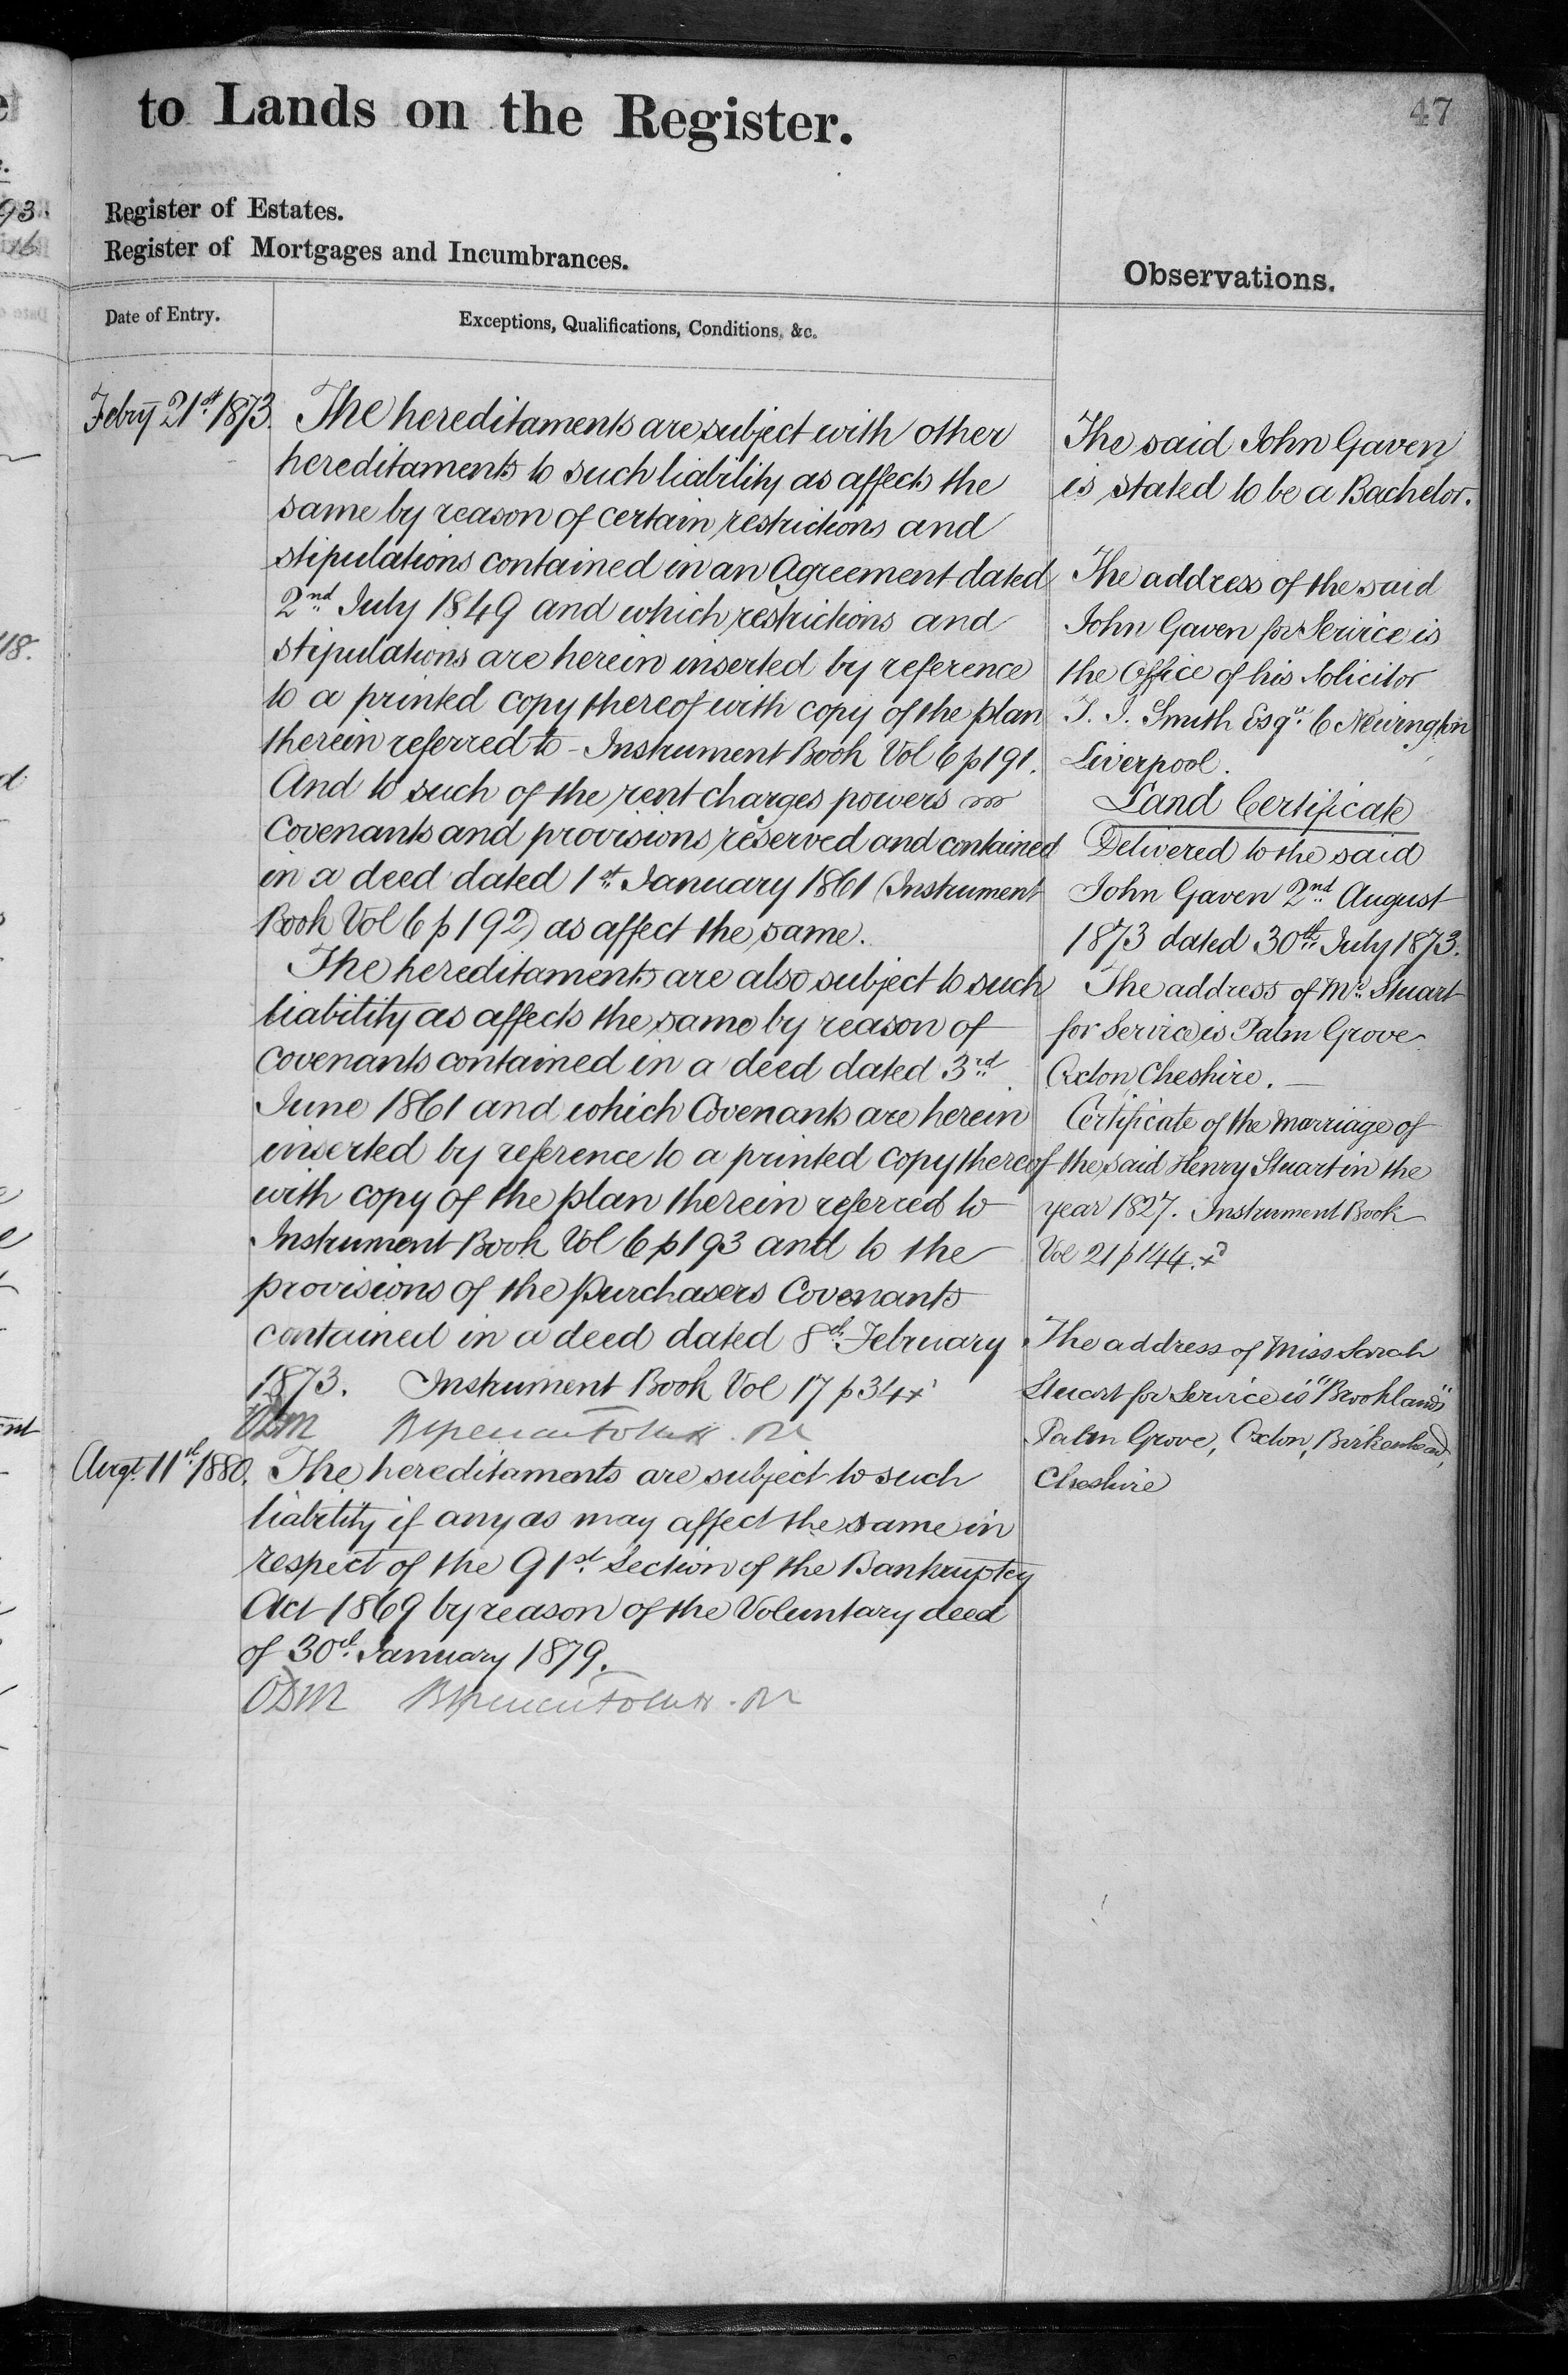 to Lands on the Register.
47
Register of Estates.
Register of Mortgages and Incumbrances.
Observations.
Date of Entry.
Exceptions, Qualifications, Conditions, &c.
Febry 21st 1873.
The hereditaments are subject with other
hereditaments to such liability as affects the
same by reason of certain restrictions and
stipulations contained in an Agreement dated
2nd July 1849 and which restrictions and
stipulations are herein inserted by reference
to a printed copy thereof with copy of the plan
therein referred to - Instrument Book Vol 6 p 191.
And to such of the rent charges powers
Covenants and provisions reserved and contained
in a deed dated 1st January 1861 (Instrument
Book Vol 6 p 192) as affect the same.
The hereditaments are also subject to such
liability as affects the same by reason of
covenants contained in a deed dated 3rd
June 1861 and which Covenants are herein
inserted by reference to a printed copy thereof
with copy of the plan therein referred to
Instrument Book Vol 6 p 193 and to the
provisions of the Purchasers Covenants
contained in a deed dated 8th February
1873. Instrument Book Vol 17 p 34 x
Augt. 11th 1880.
The hereditaments are subject to such
liability if any as may affect the same in
respect of the 91st Section of the Bankruptcy
Act 1869 by reason of the Voluntary deed
of 30th January 1879.
The said John Gaven
is stated to be a Bachelor.
The address of the said
John Gaven for Service is
the Office of his Solicitor
T. J. Smith Esqr. 6 Newington
Liverpool.
Land Certificate
Delivered to the said
John Gaven 2nd August
1873 dated 30th July 1873.
The address of Mr. Stuart
for Service is Palm Grove
Oxton Cheshire. —
Certificate of the marriage of
the said Henry Stuart in the
year 1827. Instrument Book
Vol 21 p 144. x
The address of Miss Sarah
Stuart for Service is "Brooklands"
Palm Grove, Oxton, Birkenhead,
Cheshire